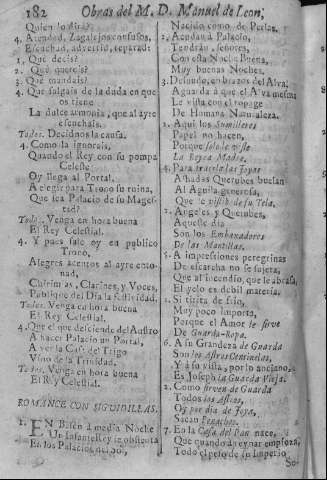 182 Obras del M. D. Manuel de Leon,
Quien lo dirà?
4. Atended, Zagalejos confusos,
Escuchad, advertid, reparad:
1. Què decis?
2. Què quereis?
3. Què mandais?
4. Que salgais de la duda en que
os tiene
La dulce armonia, que al ayre
escuchais.
Todos. Decidnos la causa.
4. Como la ignorais,
Quando el Rey con su pompa
Celeste
Oy llega al Portal,
A elegir para Trono su ruina,
Que sea Palacio de su Magestad?
Todos. Venga en hora buena
El Rey Celestial.
4. Y pues sale oy en publico
Trono,
Alegres acentos al ayre entonad,
Chirimias, Clarines, y Voces,
Publique del Dia la festividad.
Todos. Venga en hora buena
El Rey Celestial.
4. Que el que desciende del Austro
A hacer Palacio un Portal,
A ver la Casa del Trigo
Vino de la Trinidad.
Todos. Venga en hora buena
El Rey Celestial.
ROMANCE CON SIGUIDILLAS.
1. EN Belèn à media Noche
Un Infante Rey se obstenta
En los Palacios del Sol,
Nacido como de Perlas.
2. Atended à Palacio,
Tendràn, señores,
Con esta Noche Buena,
Muy buenas Noches.
3. Desnudo, en brazos del Alva,
Aguarda à que el Ava mesma
Le vista con el ropage
De Humana Naturaleza.
1. Aqui los Sumilleres
Papel no hacen,
Porque solo le viste
La Reyna Madre.
4. Para traerle las joyas
Aladas Querubes buelan
Al Aguila generosa,
Que le vistiò de su Tela.
1. Angeles y Querubes,
Aqueste dia
Son los Embaxadores
De las Mantillas.
5. A impressiones peregrinas
De escarcha no se sujeta,
Que al incendio, que le abrasa,
El yelo es debil materia.
1. Si tirita de frio,
Muy poco importa,
Porque el Amor le sirve
De Guarda-Ropa.
6. A su Grandeza de Guarda
Son los Astros Centinelas,
Y à su vista, por lo anciano,
Es Joseph la Guarda Vieja.
2. Como sirven de Guarda
Todos los Astros,
Oy por dia de Joya,
Sacan Penachos.
7. En la Casa del Pan nace,
Que quando à reynar empieza,
Todo el pelo de su Imperio
So-